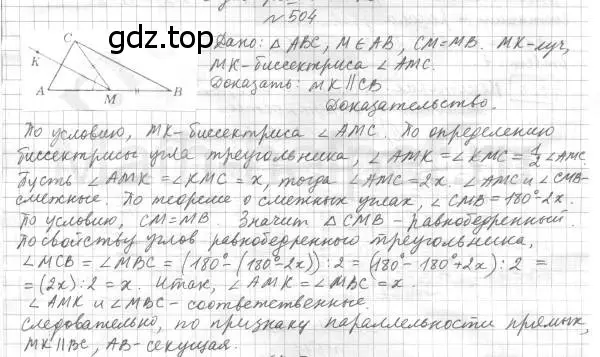 №504
gdz.top
Дано: △ ABC, M ∈ AB, CM=MB. MK-луч,
MK-биссектриса ∠ AMC.
Доказать: MK∥CB
Доказательство.
C
K
A
M
B
По условию, MK-биссектриса ∠ AMC. По определению
биссектрисы угла треугольника, ∠ AMK = ∠ KMC = 1/2 ∠ AMC.
Пусть ∠ AMK = ∠ KMC = x, тогда ∠ AMC = 2x. ∠ AMC и ∠ CMB-
смежные. По теореме о смежных углах, ∠ CMB = 180°-2x.
По условию, CM=MB. Значит △ CMB - равнобедренный.
По свойству углов равнобедренного треугольника,
∠ MCB = ∠ MBC = (180°-(180°-2x)):2 = (180°-180°+2x):2 =
= (2x):2 = x. Итак, ∠ AMK = ∠ MBC = x.
∠ AMK и ∠ MBC - соответственные.
Следовательно, по признаку параллельности прямых,
MK∥BC, AB-секущая.